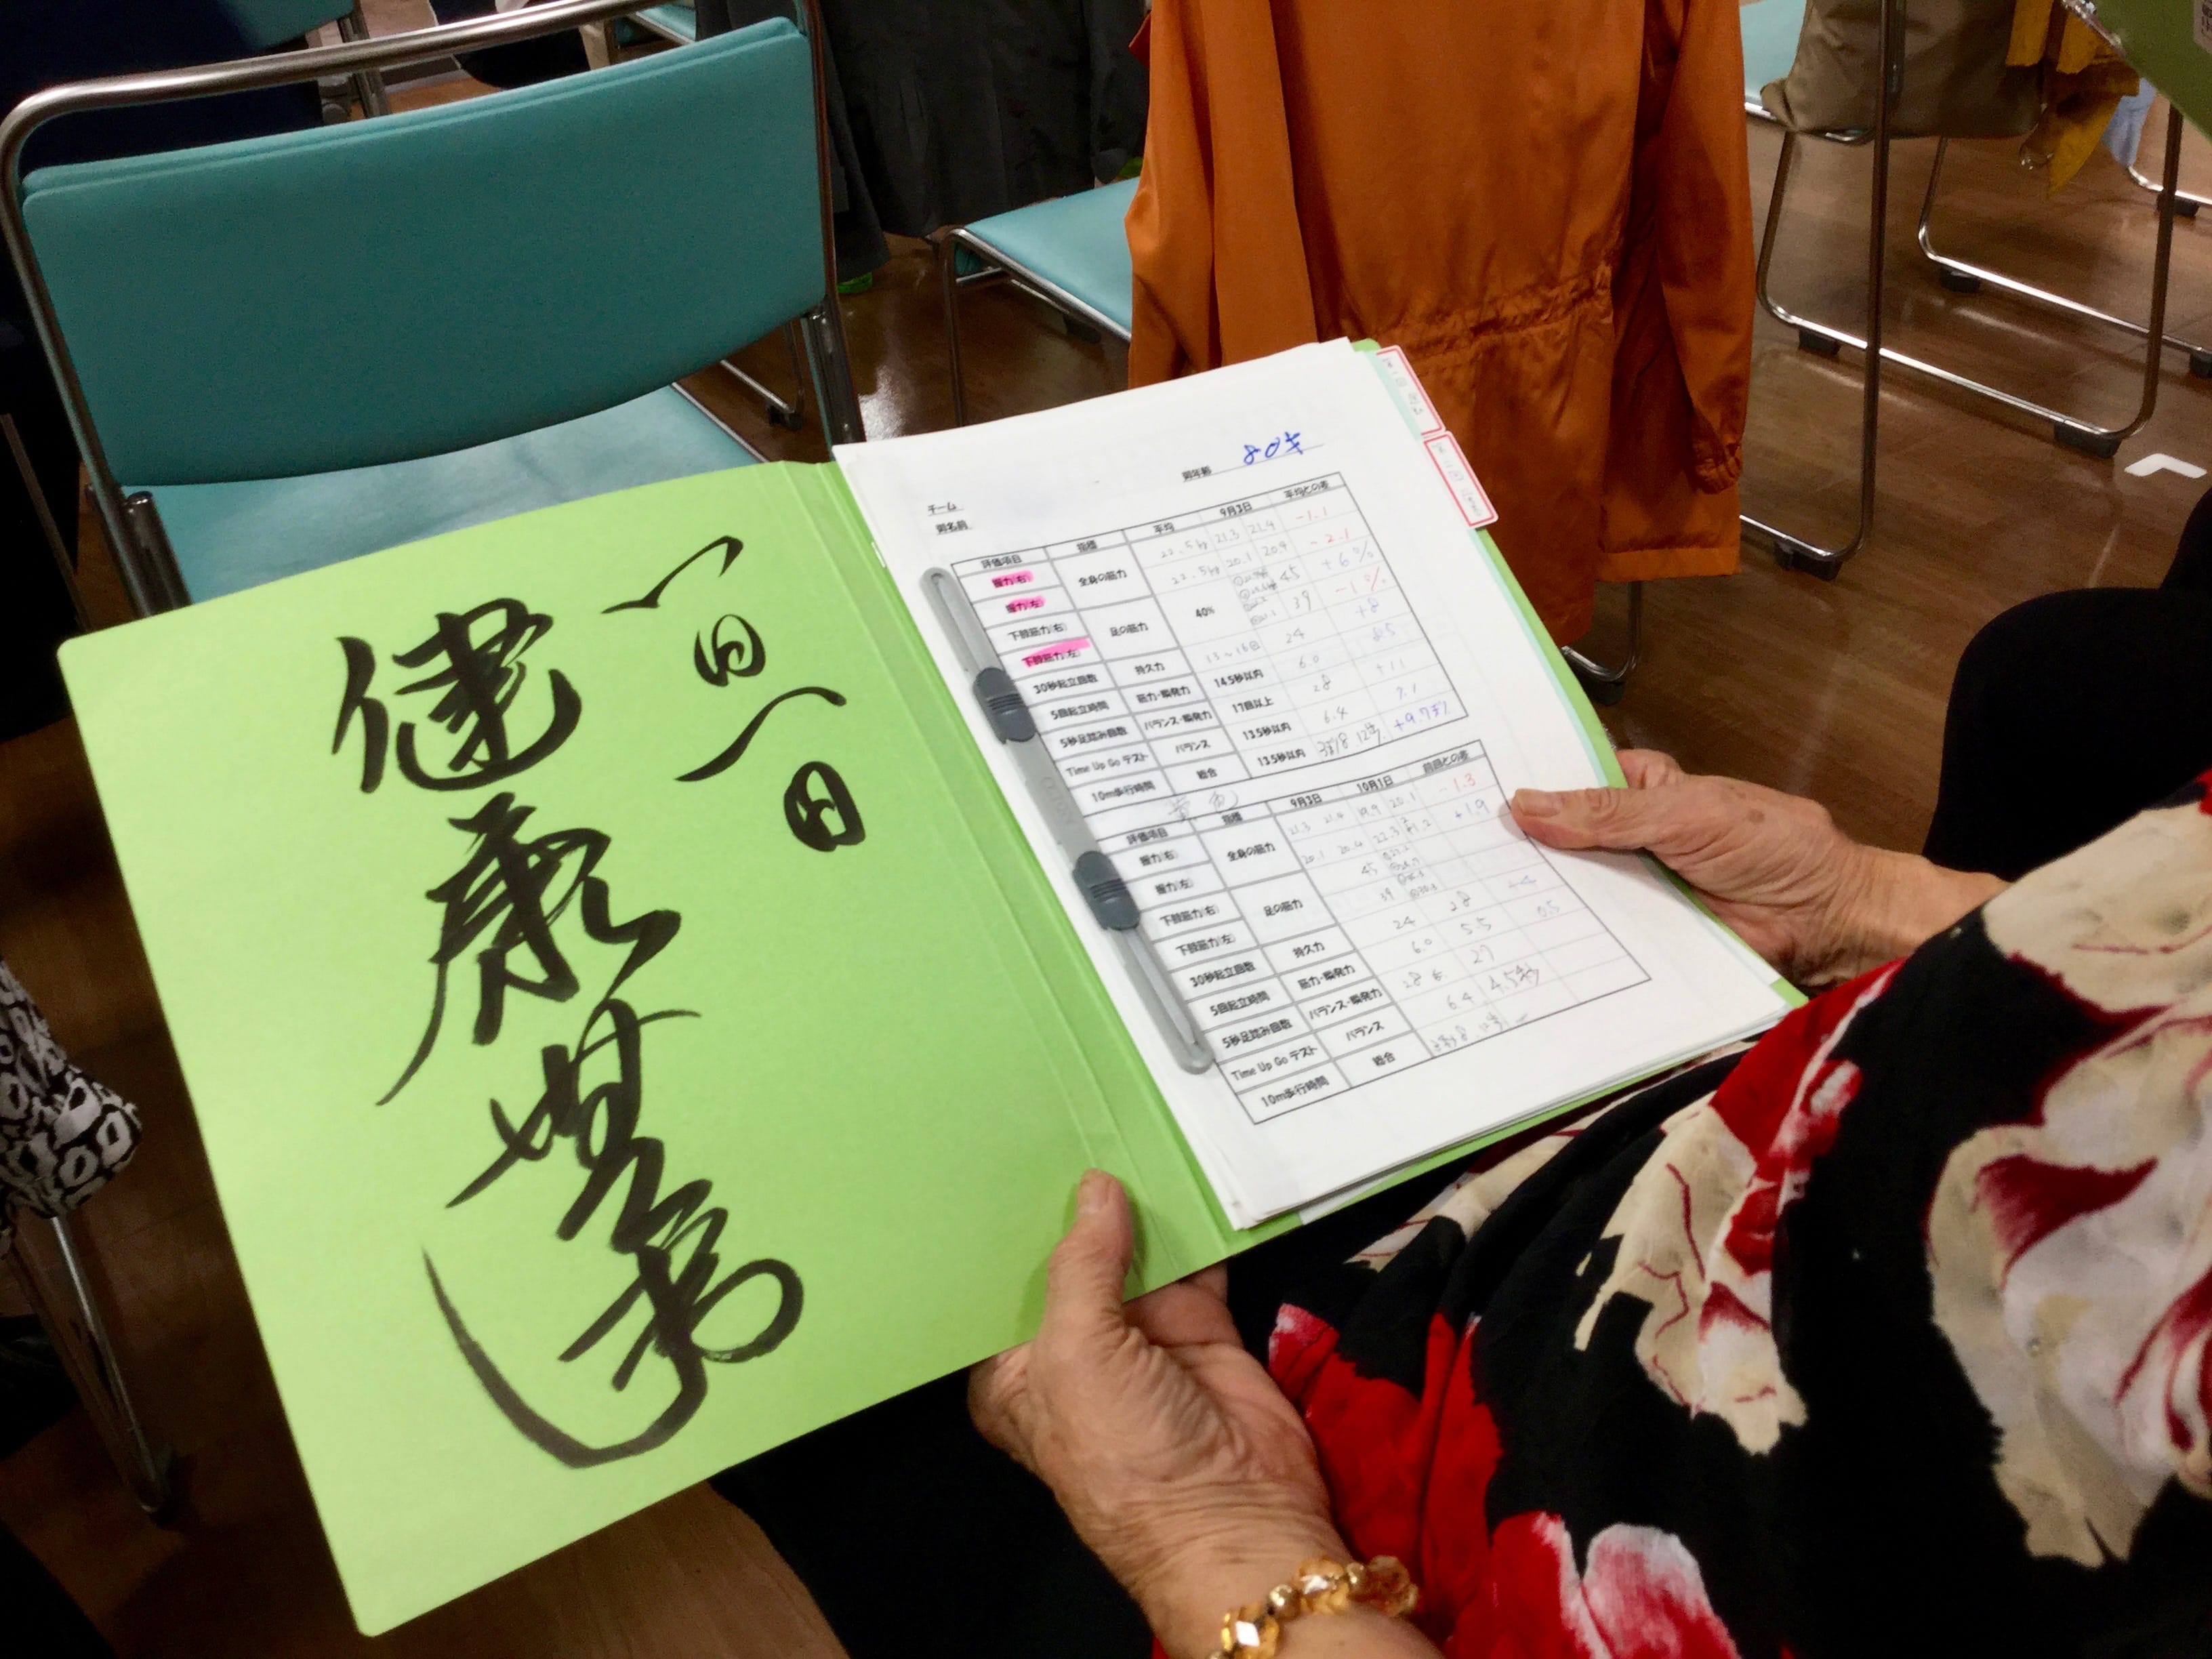 一日一日
健康
80才
御年齢
チーム
御名前
評価項目 指標 平均 9月3日 平均との差
握力(右) 全身の筋力 22.5kg 21.3 21.4 -1.1
握力(左) 22.5kg 20.1 20.4 -2.1
下肢筋力(右) 足の筋力 40% 45 +6%
下肢筋力(左) 39 -1%
30秒起立回数 持久力 13~16回 24 +8
5回起立時間 筋力・瞬発力 14.5秒以内 6.0 8.5
5秒足踏み回数 バランス・瞬発力 17回以上 28 +11
Time Up Go テスト バランス 13.5秒以内 6.4 7.1
10m歩行時間 総合 13.5秒以内 3秒8 12歩 +9.7秒
黄色
評価項目 指標 9月3日 10月1日 前回との差
握力(右) 全身の筋力 21.3 21.4 19.9 20.1 -1.3
握力(左) 20.1 20.4 22.3 +1.9
下肢筋力(右) 足の筋力 45
下肢筋力(左) 39
30秒起立回数 持久力 24 28 +4
5回起立時間 筋力・瞬発力 6.0 5.5 0.5
5秒足踏み回数 バランス・瞬発力 28 27
Time Up Go テスト バランス 6.4 4.5秒
10m歩行時間 総合 3秒8 12歩